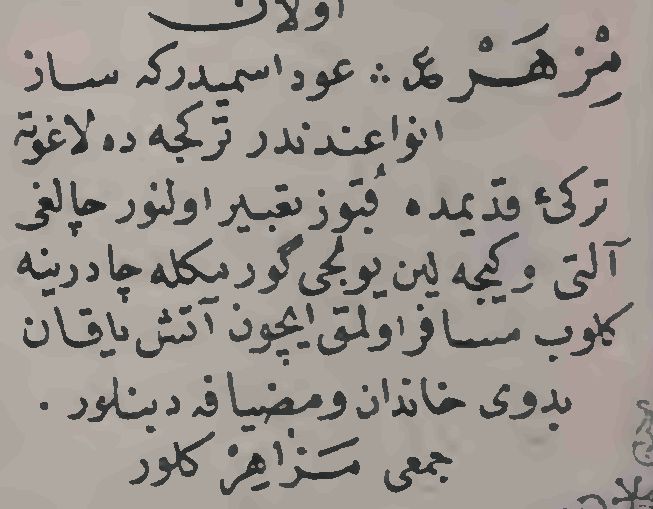 اولان
مِزْهَرْ ع :. عود اسميدركه ساز
انواعندندر تركجه ده لاغوته
تركئ قديمده قُبوز تعبير اولنور چالغى
آلتى وكيجه لين يولجى گورمكله چادرينه
كلوب مسافر اولمق ايچون آتش ياقان
بدوى خاندان ومضيافه دينلور .
جمعى مَزَاهِرْ كلور